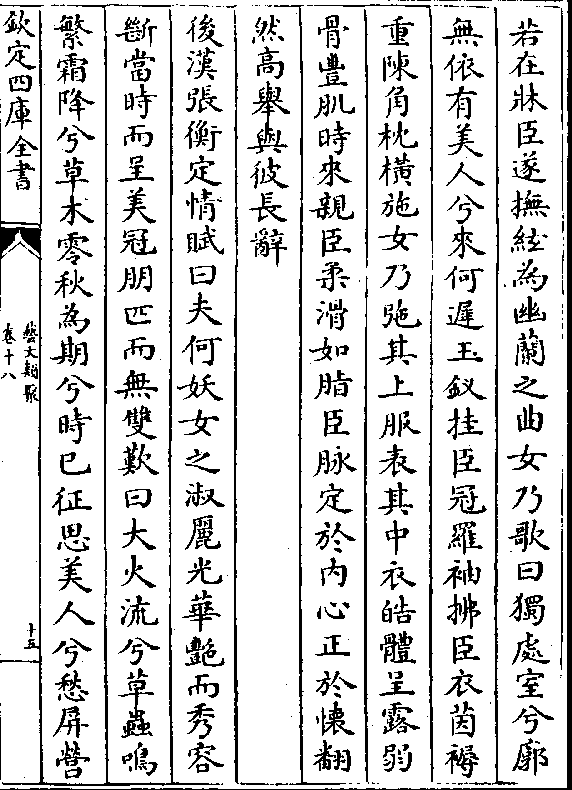 若在牀臣遂撫絃為幽蘭之曲女乃歌曰獨處室兮廓
無依有美人兮來何遲玉釵挂臣冠羅袖拂臣衣茵褥
重陳角枕橫施女乃弛其上服表其中衣皓體呈露弱
骨豐肌時來親臣柔滑如脂臣脉定於內心正於懷翻
然高舉與彼長辭
後漢張衡定情賦曰夫何妖女之淑麗光華艷而秀容
斷當時而呈美冠朋匹而無雙歎曰大火流兮草蟲鳴
繁霜降兮草木零秋為期兮時已征思美人兮愁屏營
欽定四庫全書
藝文類聚
卷十八
十五